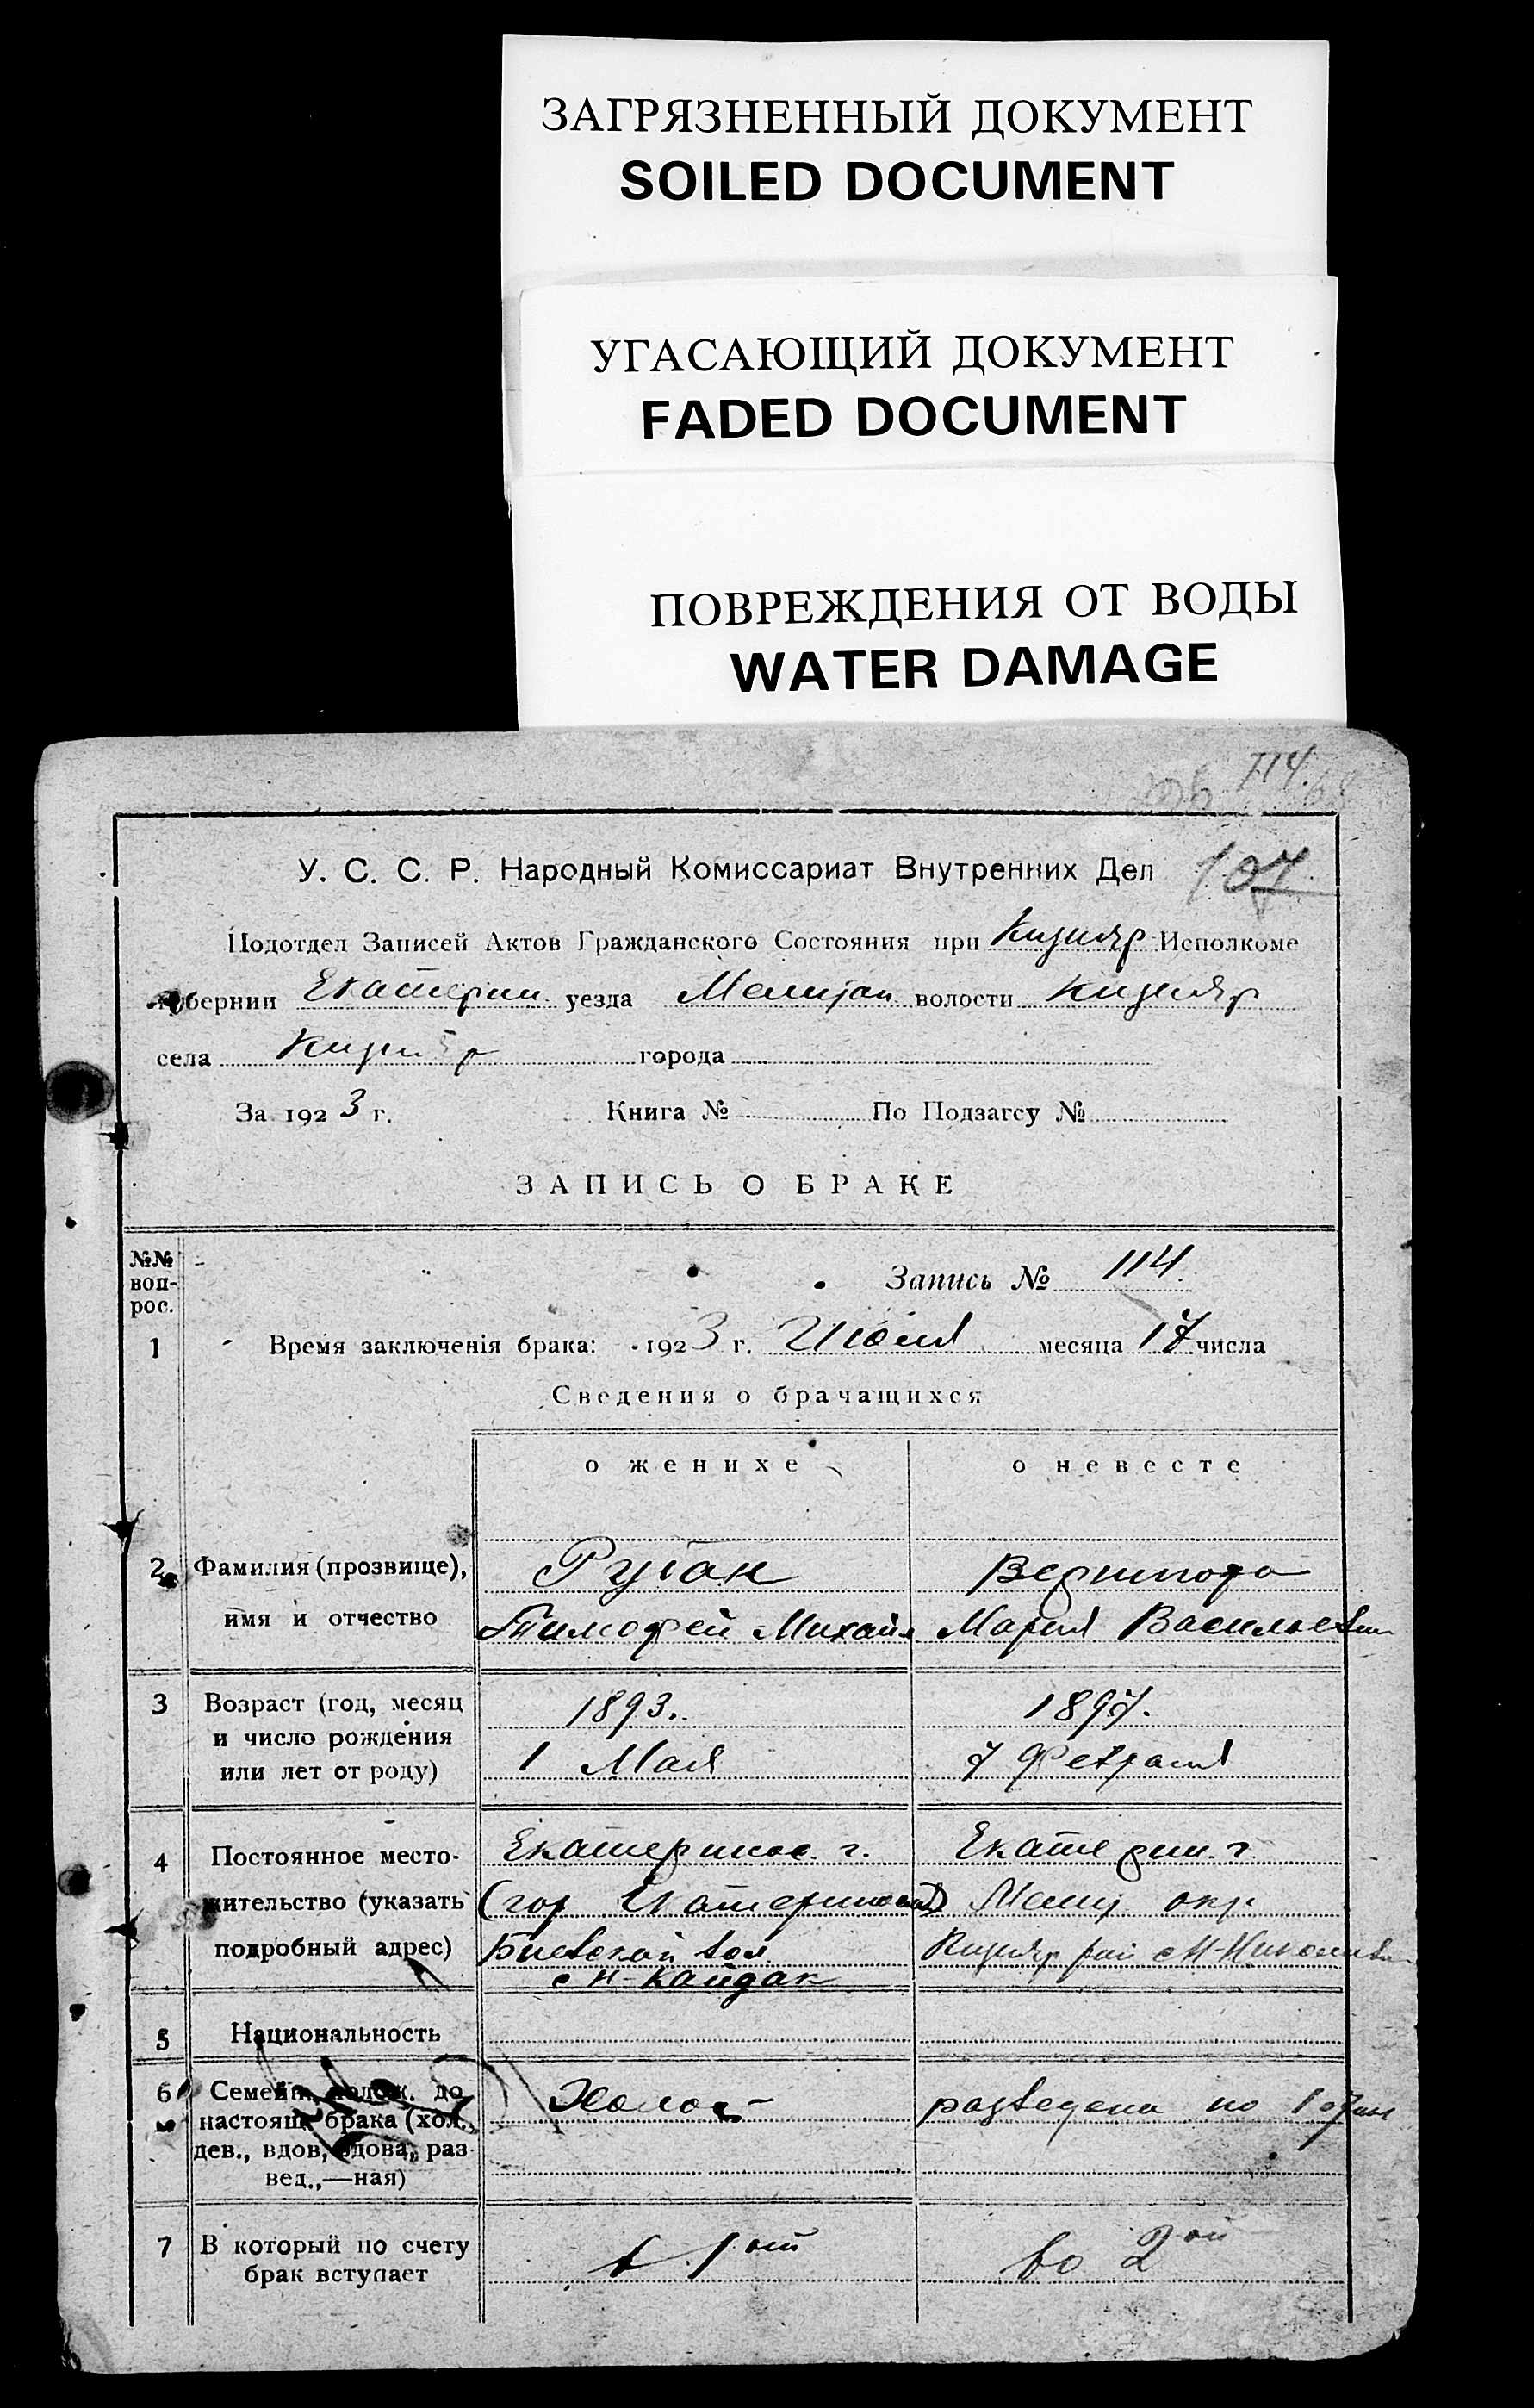 ЗАГРЯЗНЕННЫЙ ДОКУМЕНТ
SOILED DOCUMENT
УГАСАЮЩИЙ ДОКУМЕНТ
FADED DOCUMENT
ПОВРЕЖДЕНИЯ ОТ ВОДЫ
WATER DAMAGE
114
У. С. С. Р. Народный Комиссариат Внутренних Дел 107
Подотдел Записей Актов Гражданского Состояния при Кизияр Исполкоме
губернии Екатерин уезда Мелитоп волости Кизияр
села Кизияр города
За 1923 г. Книга № По Подзагсу №
ЗАПИСЬ О БРАКЕ
№№ воп-рос.
Запись № 114.
1 Время заключенія брака: 1923 г. Июля месяца 17 числа
Сведения о брачащихся
о женихе о невесте
2 Фамилия (прозвище), Рубан
имя и отчество Тимофей Михайл Мария Васильевн
3 Возраст (год, месяц 1893. 1897.
и число рождения
или лет от роду) 1 Мая 7 Февраля
4 Постоянное место- Екатеринос. г. Екатерин. г
жительство (указать (гор Катеринослав) Мелит окр.
подробный адрес) вол Кизияр рай с Н-Николаев
с Н-Кайдак
5 Национальность
6 Семейн. полож. до Холост разведена по
настоящ. брака (хол.,
дев., вдов, вдова, раз-
вед.,—ная)
7 В который по счету в 1ый во 2ой
брак вступает